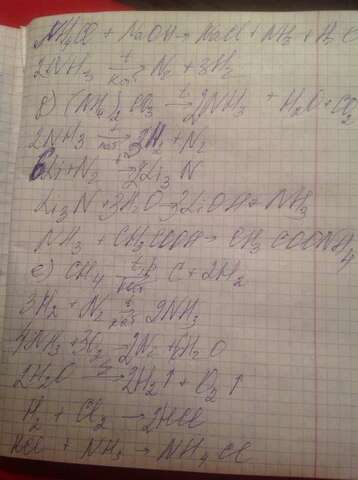 NH4Cl + NaOH → NaCl + NH3 + H2O
2NH3 t/кат. → N2 + 3H2
д) (NH4)2CO3 t→ 2NH3 + H2O + CO2
2NH3 t/кат. → 3H2 + N2
6Li + N2 t→ 2Li3N
Li3N + 3H2O → 3LiOH + NH3
NH3 + CH3COOH → CH3COONH4
е) CH4 t, кат. → C + 2H2
3H2 + N2 t/кат. → 2NH3
4NH3 + 3O2 → 2N2 + 6H2O
2H2O → 2H2↑ + O2↑
H2 + Cl2 → 2HCl
HCl + NH3 → NH4Cl